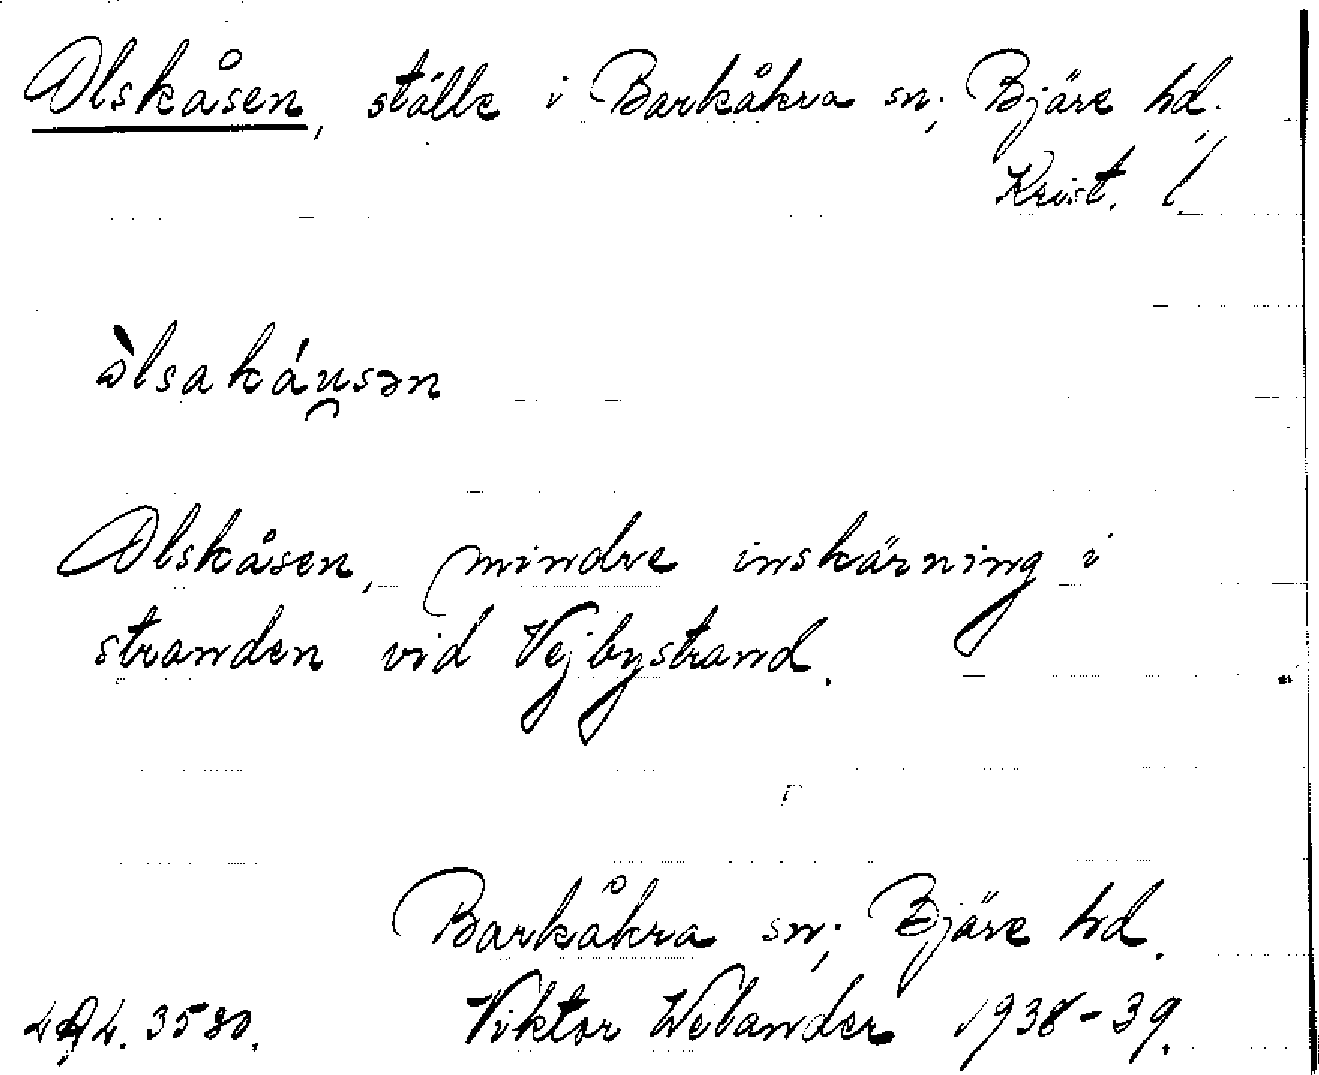 Olskåsen, ställe i Barkåkra sn; Bjäre hd.,
Krist. l.
òlsakáu̯sən
Olskåsen, mindre inskärning i
stranden vid Vejbystrand.
Barkåkra sn; Bjäre hd.
3580. Viktor Welander 1938-39.